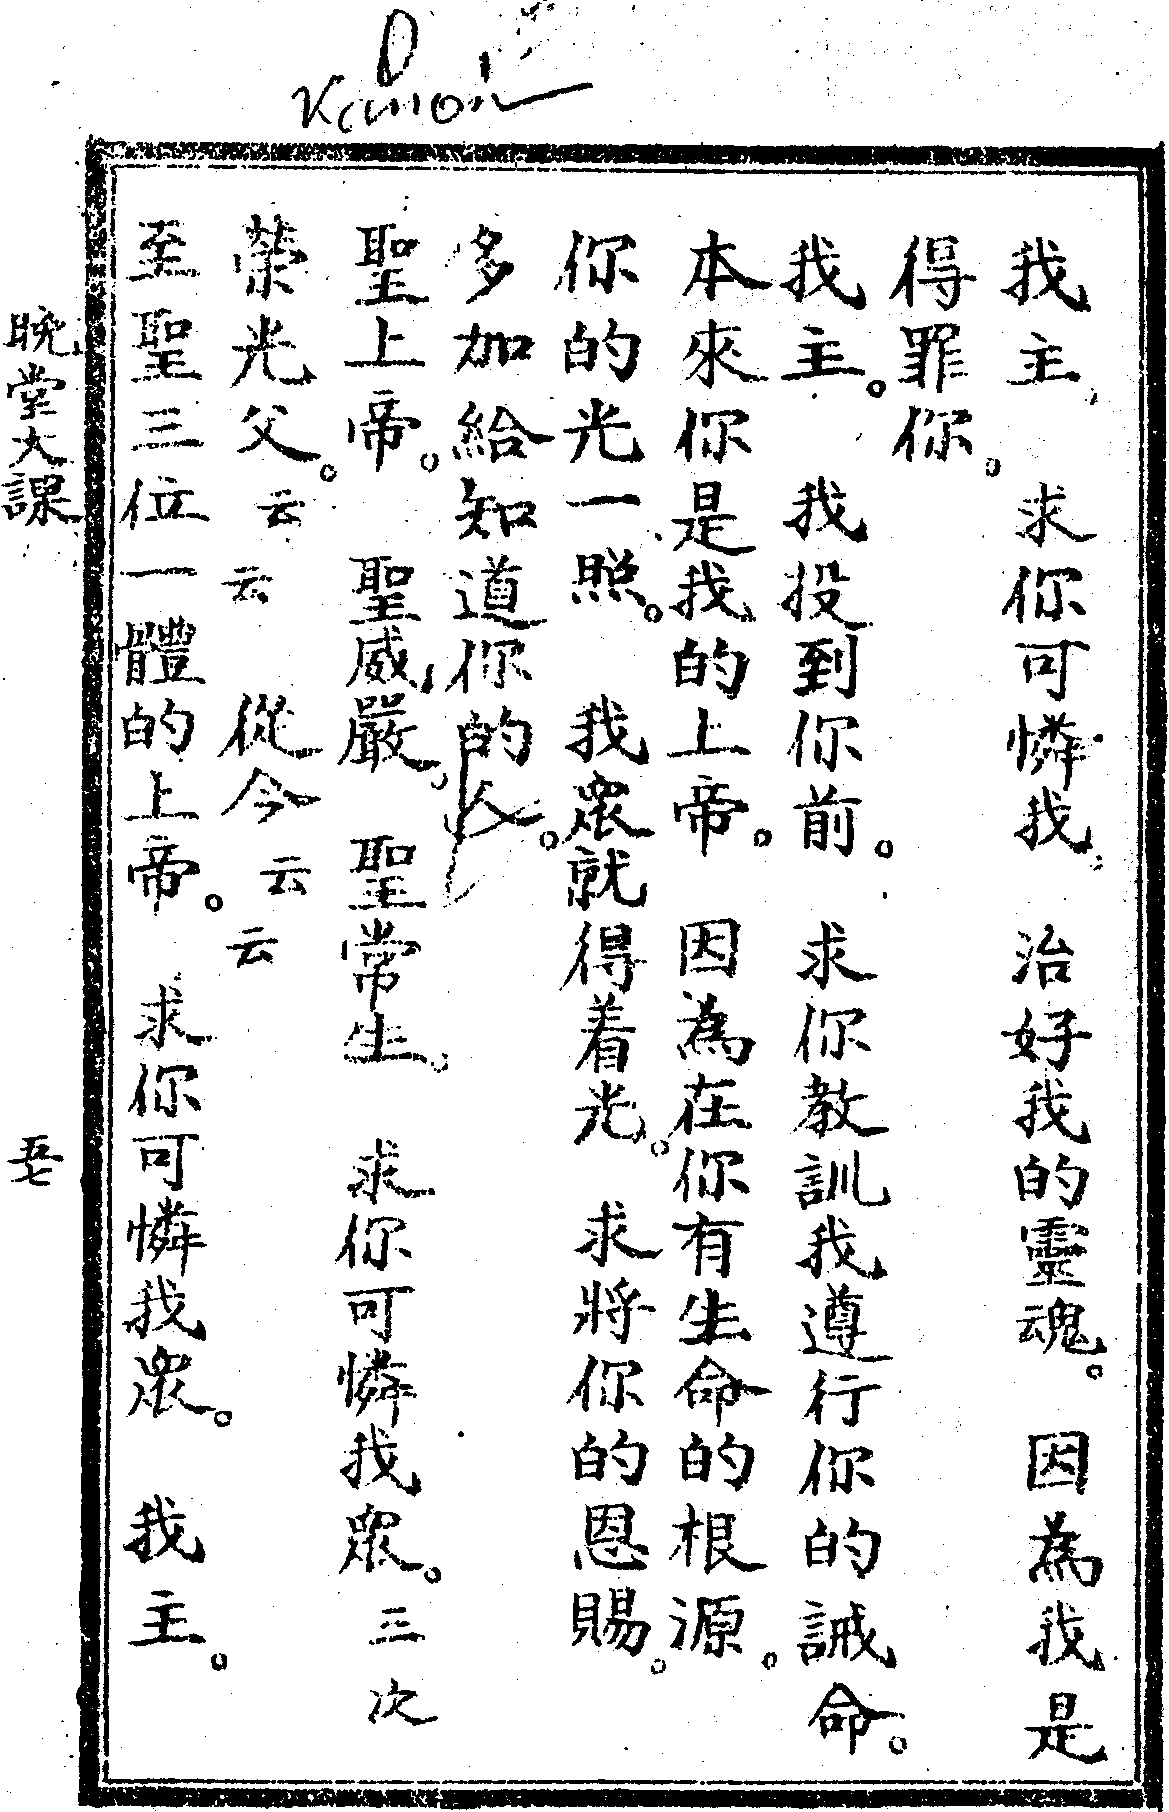 我主 求你可憐我。 治好我的靈魂。 因為我是
得罪你。
我主。 我投到你前。 求你教訓我遵行你的誡命。
本來你是我的上帝。 因為在你有生命的根源。
你的光一照。 我眾就得着光。 求將你的恩賜。
多加給知道你的人。
聖上帝。 聖威嚴。 聖常生。 求你可憐我眾。 三次
榮光父。 云云 從今 云云
至聖三位一體的上帝。 求你可憐我眾。 我主。
晚堂大課 五七